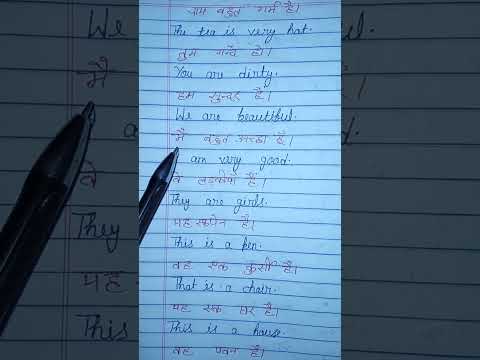 चाय बहुत गर्म है।
The tea is very hot.
तुम गन्दे हो।
You are dirty.
हम सुन्दर है।
We are beautiful.
मै बहुत अच्छा हूँ।
am very good.
वे हैं।
They are girls.
यह पेन है।
This is a pen.
वह एक कुर्सी है।
That is a chair.
यह एक घर है।
This is a house.
वह पवन है।